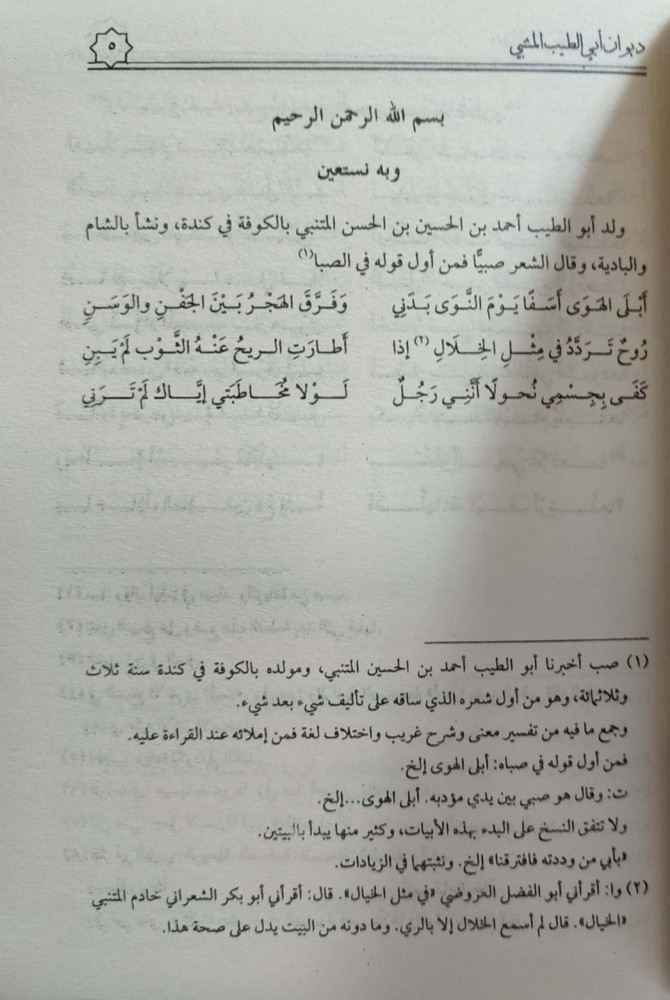 ديوان أبي الطيب المتنبي ٥
بسم الله الرحمن الرحيم
وبه نستعين
ولد أبو الطيب أحمد بن الحسين بن الحسن المتنبي بالكوفة في كندة، ونشأ بالشام
والبادية، وقال الشعر صبيًّا فمن أول قوله في الصبا(١)
أَبْلَى الهَوَى أَسَفًا يَوْمَ النَّوَى بَدَنِي وَفَرَّقَ الهَجْرُ بَيْنَ الجَفْنِ والوَسَنِ
رُوحٌ تَرَدَّدُ في مِثْلِ الخِلَالِ (٢) إذا أَطارَتِ الريحُ عَنْهُ الثَّوْبَ لَمْ يَبِنِ
كَفَى بِجِسْمِي نُحولًا أَنَّنِي رَجُلٌ لَوْلا مُخَاطَبَتي إيَّاكَ لَمْ تَرَنِي
(١) صب أخبرنا أبو الطيب أحمد بن الحسين المتنبي، ومولده بالكوفة في كندة سنة ثلاث
وثلاثمائة، وهو من أول شعره الذي ساقه على تأليف شيء بعد شيء.
وجمع ما فيه من تفسير معنى وشرح غريب واختلاف لغة فمن إملائه عند القراءة عليه.
فمن أول قوله في صباه: أبلى الهوى إلخ.
ت: وقال هو صبي بين يدي مؤدبه. أبلى الهوى...إلخ.
ولا تتفق النسخ على البدء بهذه الأبيات، وكثير منها يبدأ بالبيتين.
«بأبي من وددته فافترقنا» إلخ. ونثبتهما في الزيادات.
(٢) وا: أقرأني أبو الفضل العروضي «في مثل الخيال». قال: أقرأني أبو بكر الشعراني خادم المتنبي
«الخيال». قال لم أسمع الخلال إلا بالري. وما دونه من البيت يدل على صحة هذا.